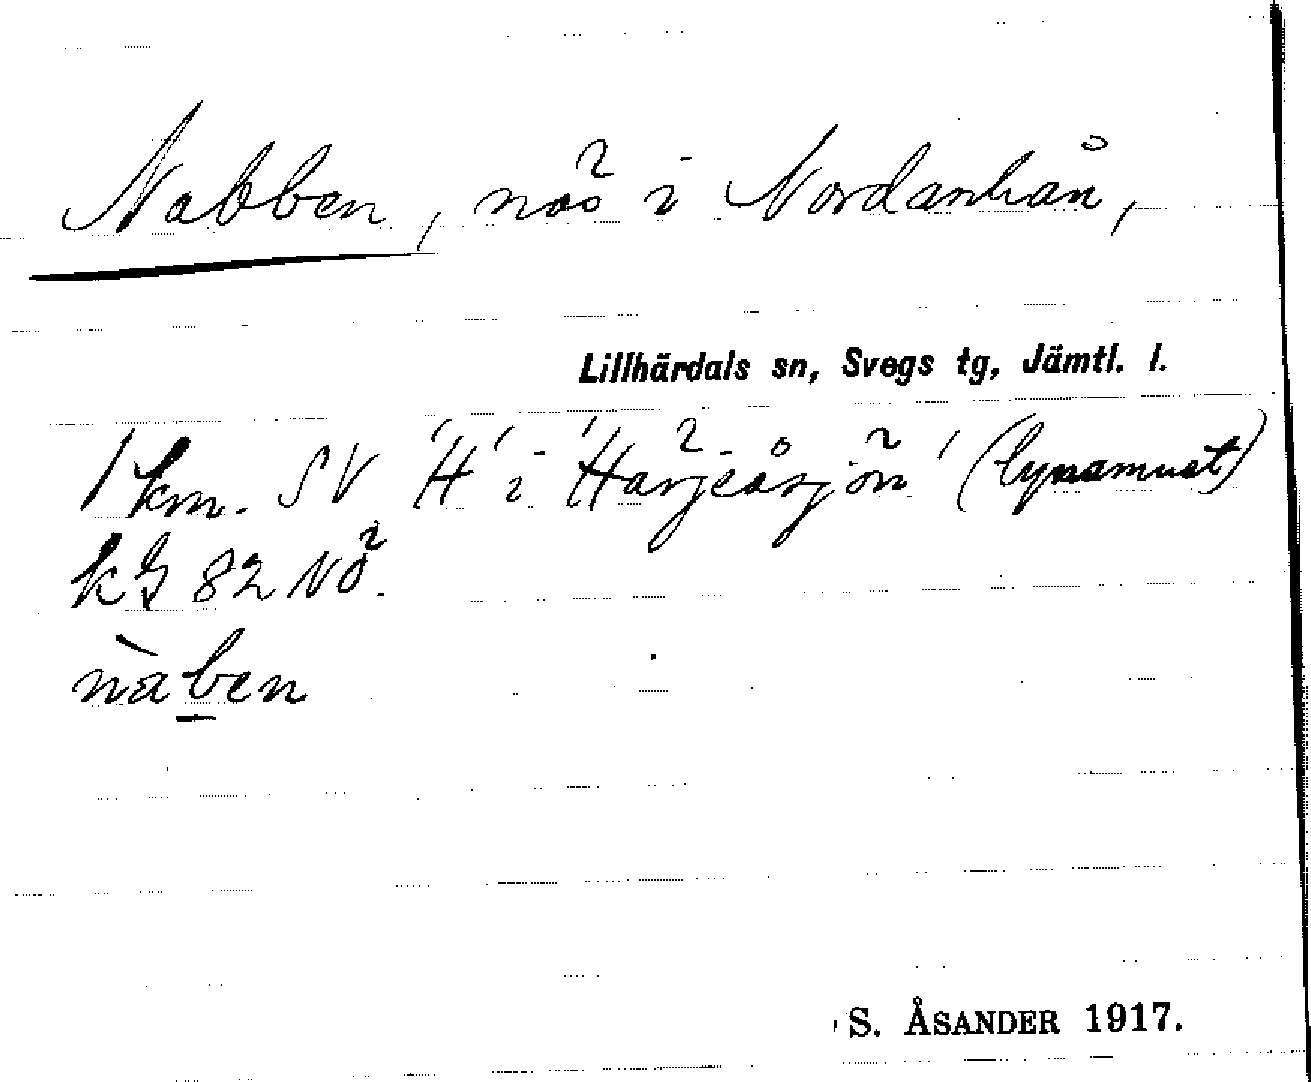 Nabben, näs i Nordanhån,
Lillhärdals sn, Svegs tg, Jämtl. l.
1 km. SV 'H' i 'Härjeåsjön'
kG 82 NÖ.
nàben
S. ÅSANDER 1917.